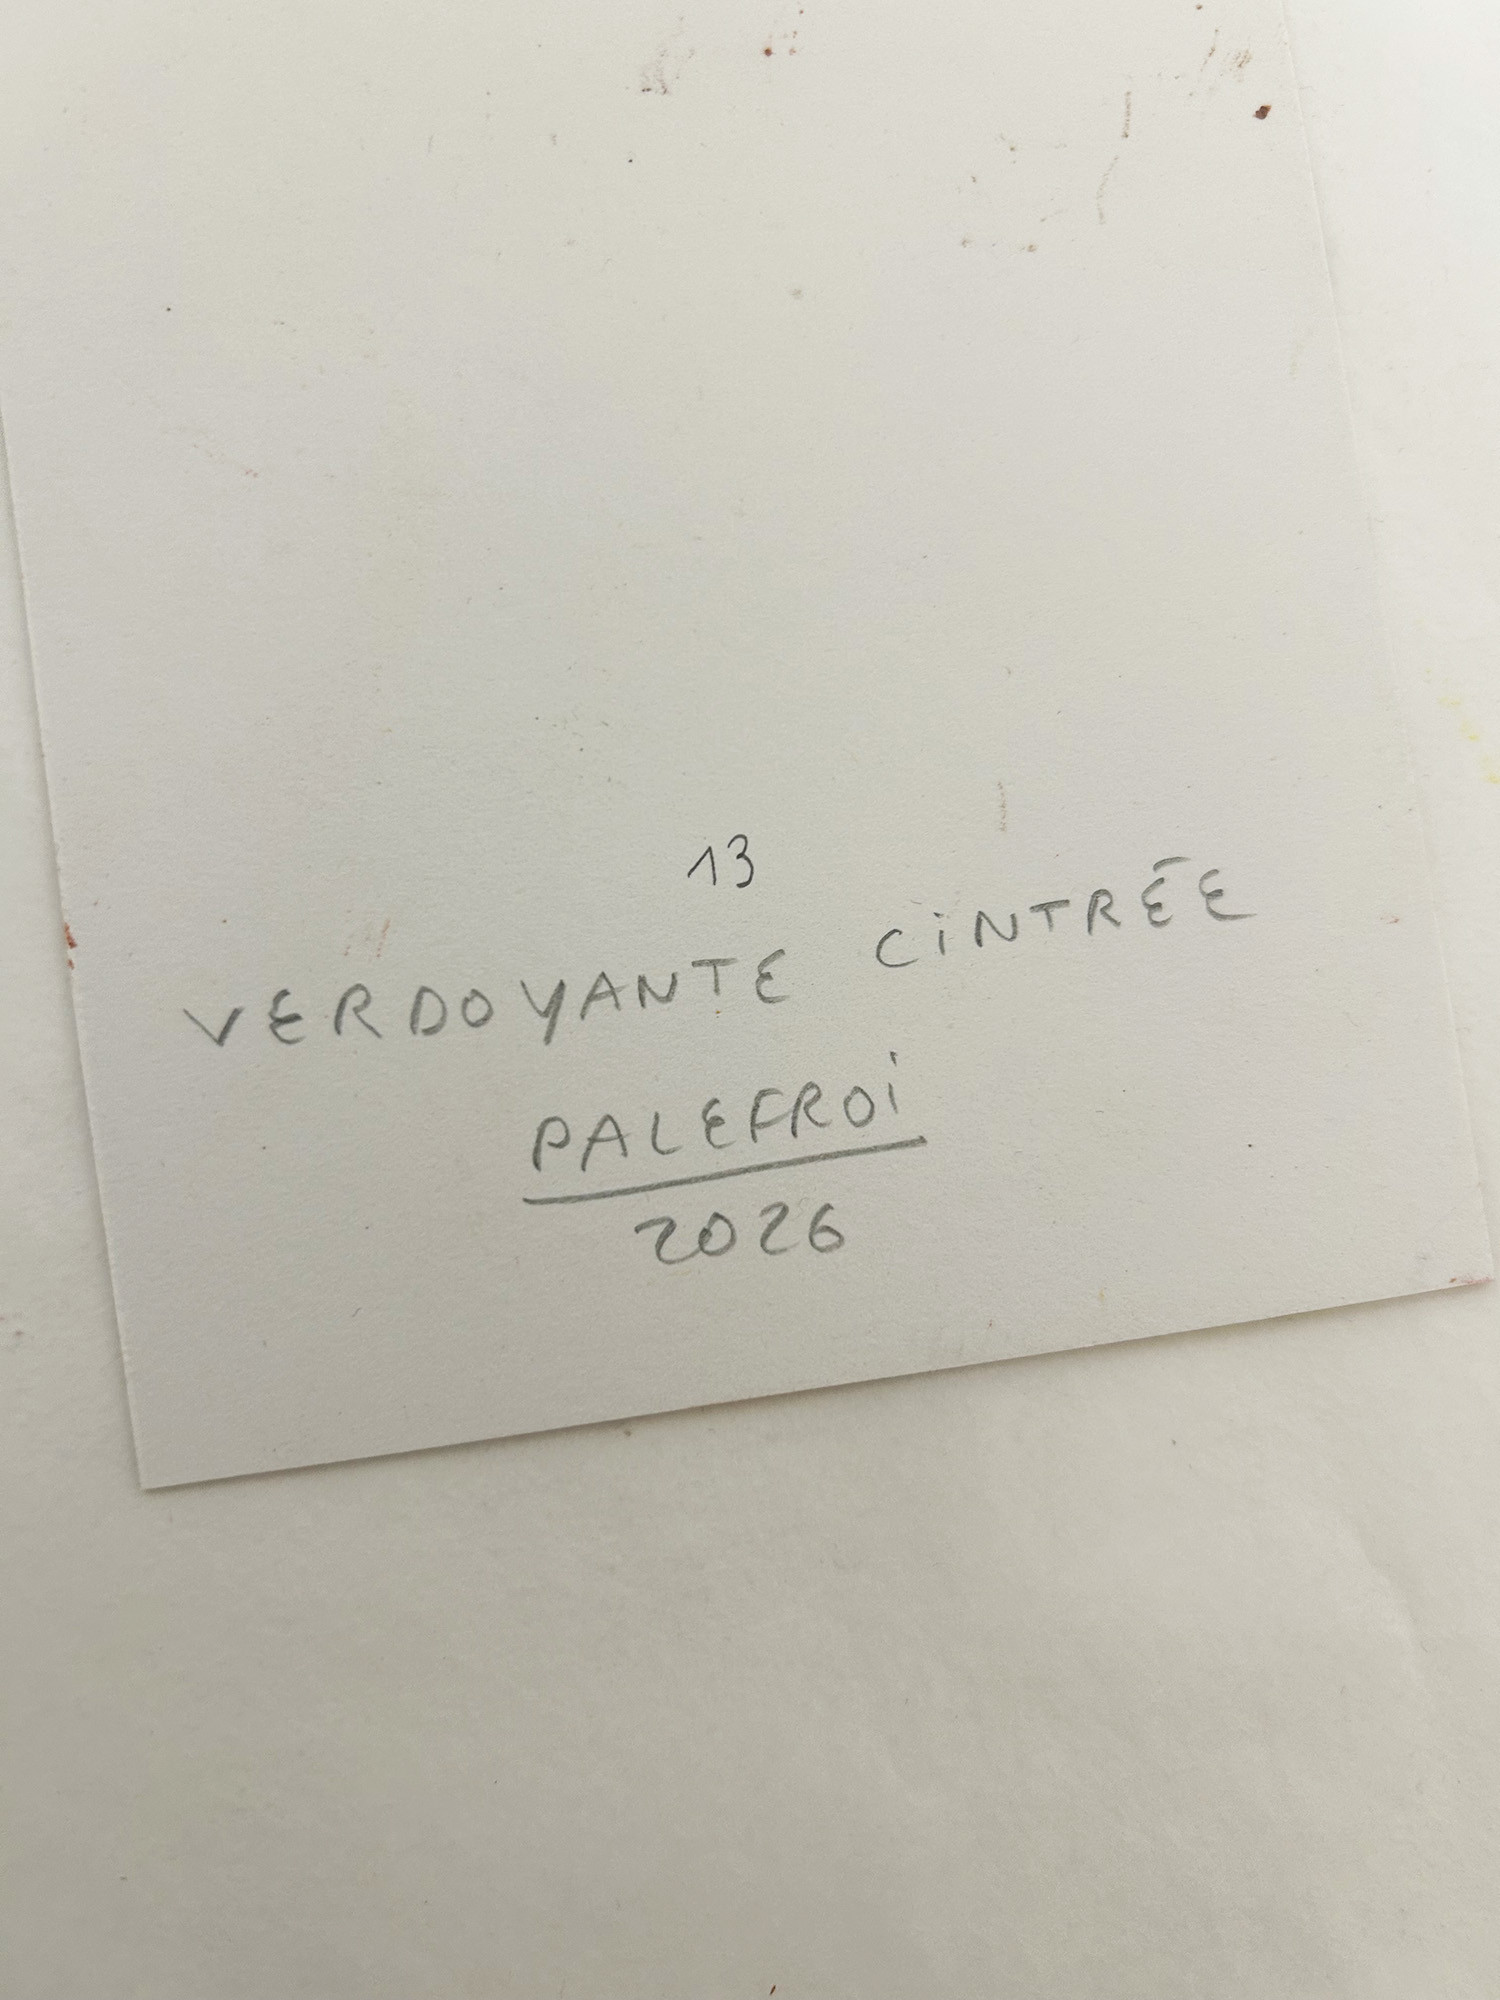 13
VERDOYANTE CiNTRÉE
PALEFROi
2026